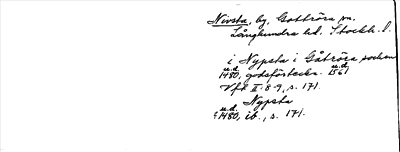 Nivsta, by, Gottröra sn.
Långhundra hd. Stockh. l.
i Nypsta i Gåtröra sochn
u.d. u.d.
1480, godsförteckn. 1561
Vft II: 8-9, s. 171.
Nypsta
u.d.
1480, ib., s. 171.